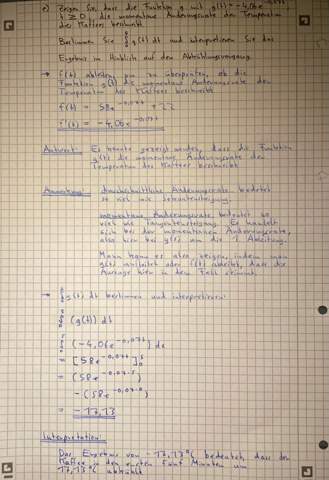 e) Zeigen Sie, dass die Funktion g mit g(t) = -4,06e^-0,07t
t ≥ 0, die momentane Änderungsrate der Temperatur
des Kaffees beschreibt
Bestimmen Sie ∫ g(t) dt und interpretieren Sie das
Ergebnis im Hinblick auf den Abkühlungsvorgang.
→ f(t) ableiten um zu überprüfen, ob die
Funktion g(t) die momentane Änderungsrate der
Temperatur des Kaffees beschreibt
f(t) = 58e^-0,07t + 22
f'(t) = -4,06e^-0,07t
Antwort: Es konnte gezeigt werden, dass die Funktion
g(t) die momentane Änderungsrate der
Temperatur des Kaffees beschreibt
Anmerkung: durchschnittliche Änderungsrate bedeutet
so viel wie Sekantensteigung.
momentane Änderungsrate bedeutet so
viel wie Tangentensteigung. Es handelt
sich bei der momentanen Änderungsrate,
also hier bei g(t) um die 1. Ableitung.
Mann kann es also zeigen, indem man
f(t) ableitet, dass die
Aussage hier in dem Fall stimmt.
→ ∫ g(t) dt bestimmen und interpretieren:
∫ (g(t)) dt
∫ (-4,06e^-0,07t) dt
= [58e^-0,07t]
= (58e^-0,07·5)
-(58e^-0,07·0)
= -17,13
Interpretation:
Das Ergebnis von -17,13°C bedeutet, dass der
Kaffee in den ersten fünf Minuten um
17,13°C abkühlt